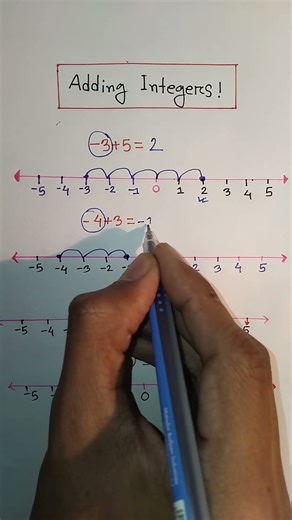 Adding Integers!
-3+5=2
-5 -4 -3 -2 -1 0 1 2 3 4 5
-4+3=-1
-5 -4 -3 -2 2 3 4 5
-5 -4 -3 -2 5
-5 -4 0